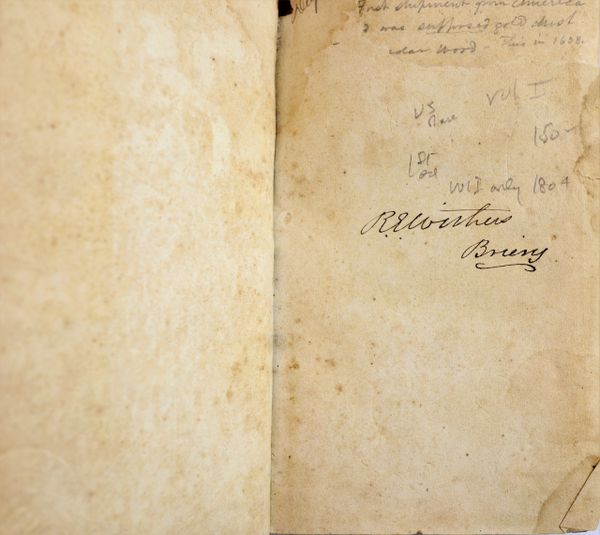 First shipment from America
& was supposed gold dust
cedar wood - This in 1608.
Vol I
US
Rare
150-
1st
ed
Vol I only 1804
R.E. Withers
Briery